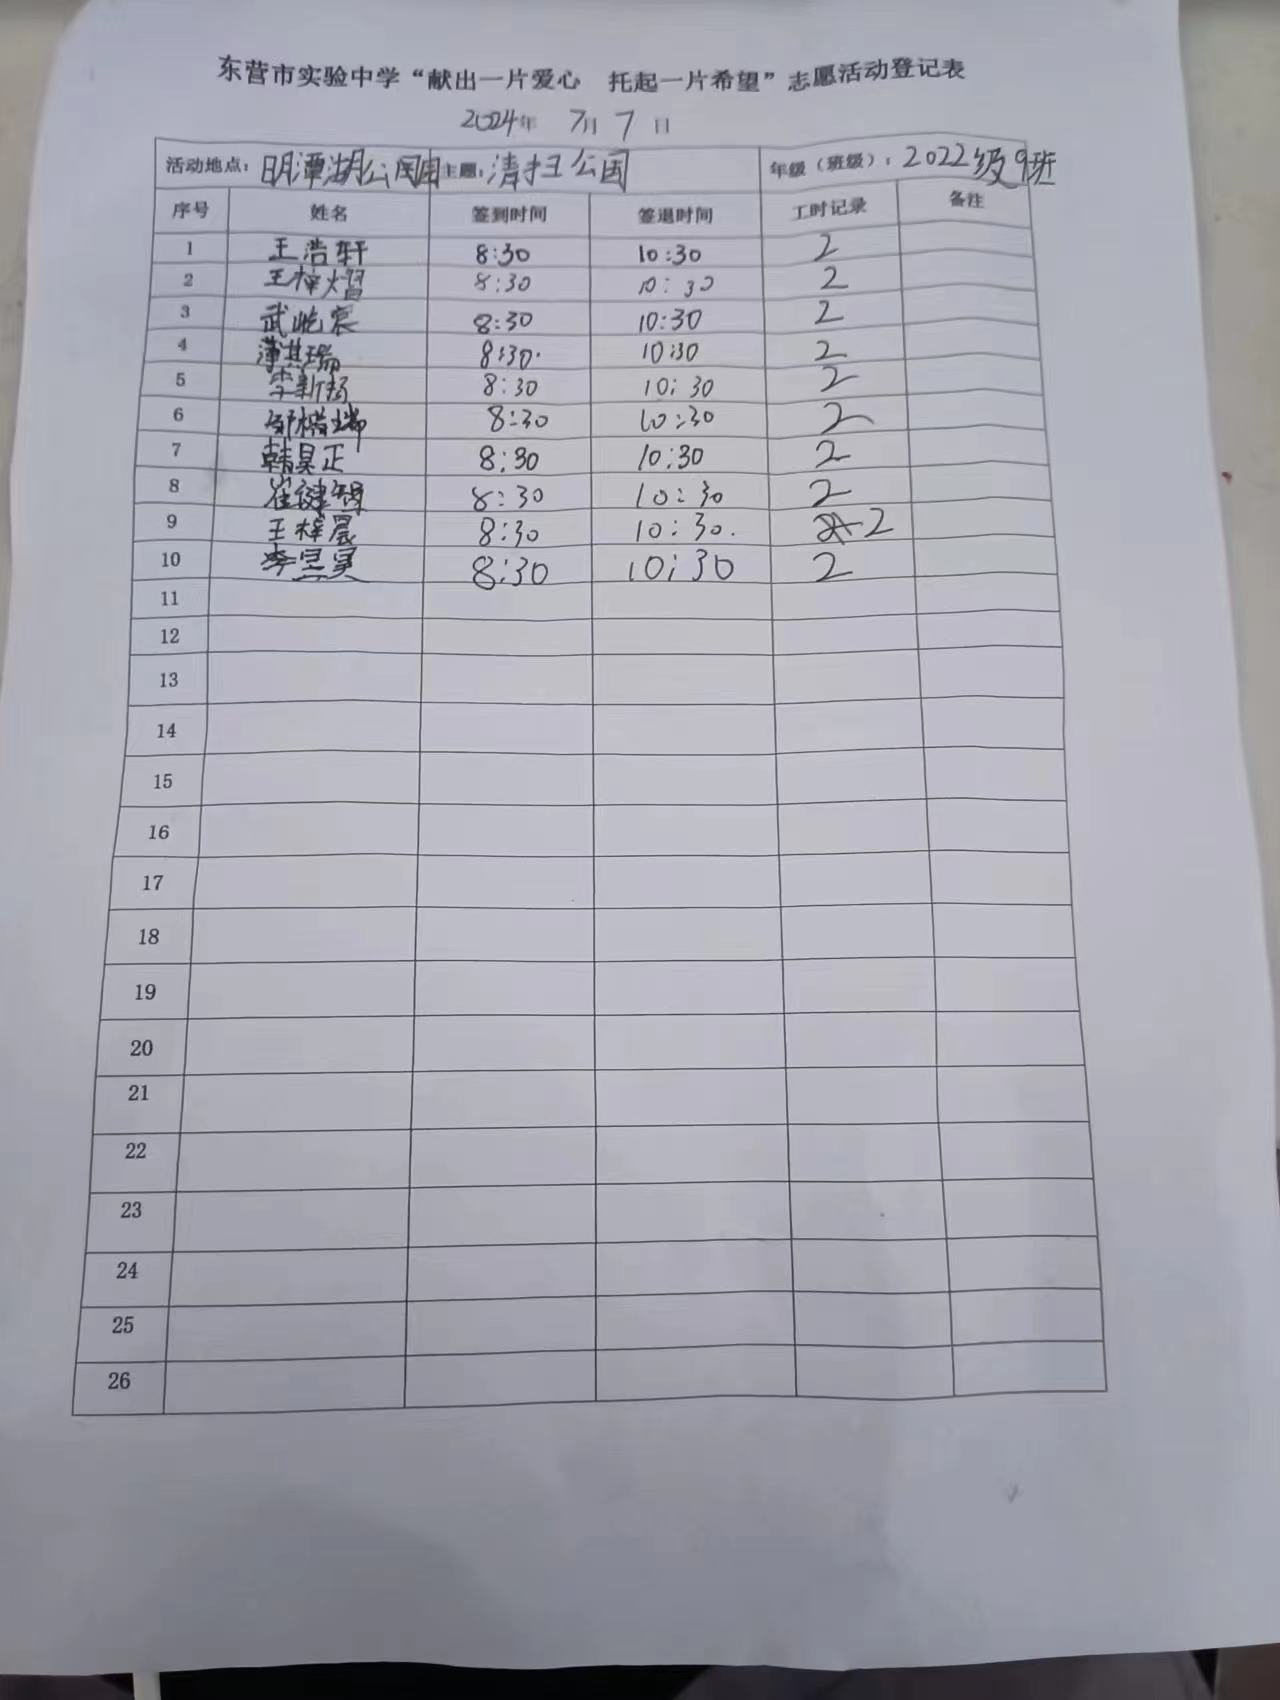 东营市实验中学“献出一片爱心 托起一片希望”志愿活动登记表
2024年 7月 7 日
活动地点：明潭湖公园 主题：清扫公园 年级（班级）：2022级9班
序号 姓名 签到时间 签退时间 工时记录 备注
1 王浩轩 8:30 10:30 2
2 王梓熠 8:30 10:30 2
3 武屹宸 8:30 10:30 2
4 薄其瑞 8:30 10:30 2
5 李新扬 8:30 10:30 2
6 8:30 10:30 2
7 韩昊正 8:30 10:30 2
8 8:30 10:30 2
9 王梓晨 8:30 10:30 2
10 8:30 10:30 2
11
12
13
14
15
16
17
18
19
20
21
22
23
24
25
26